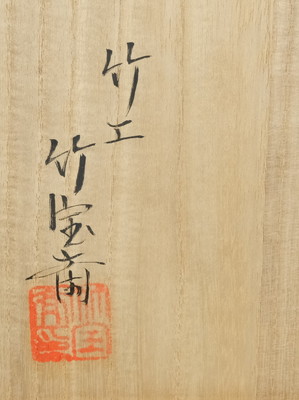 竹工
竹宝斎